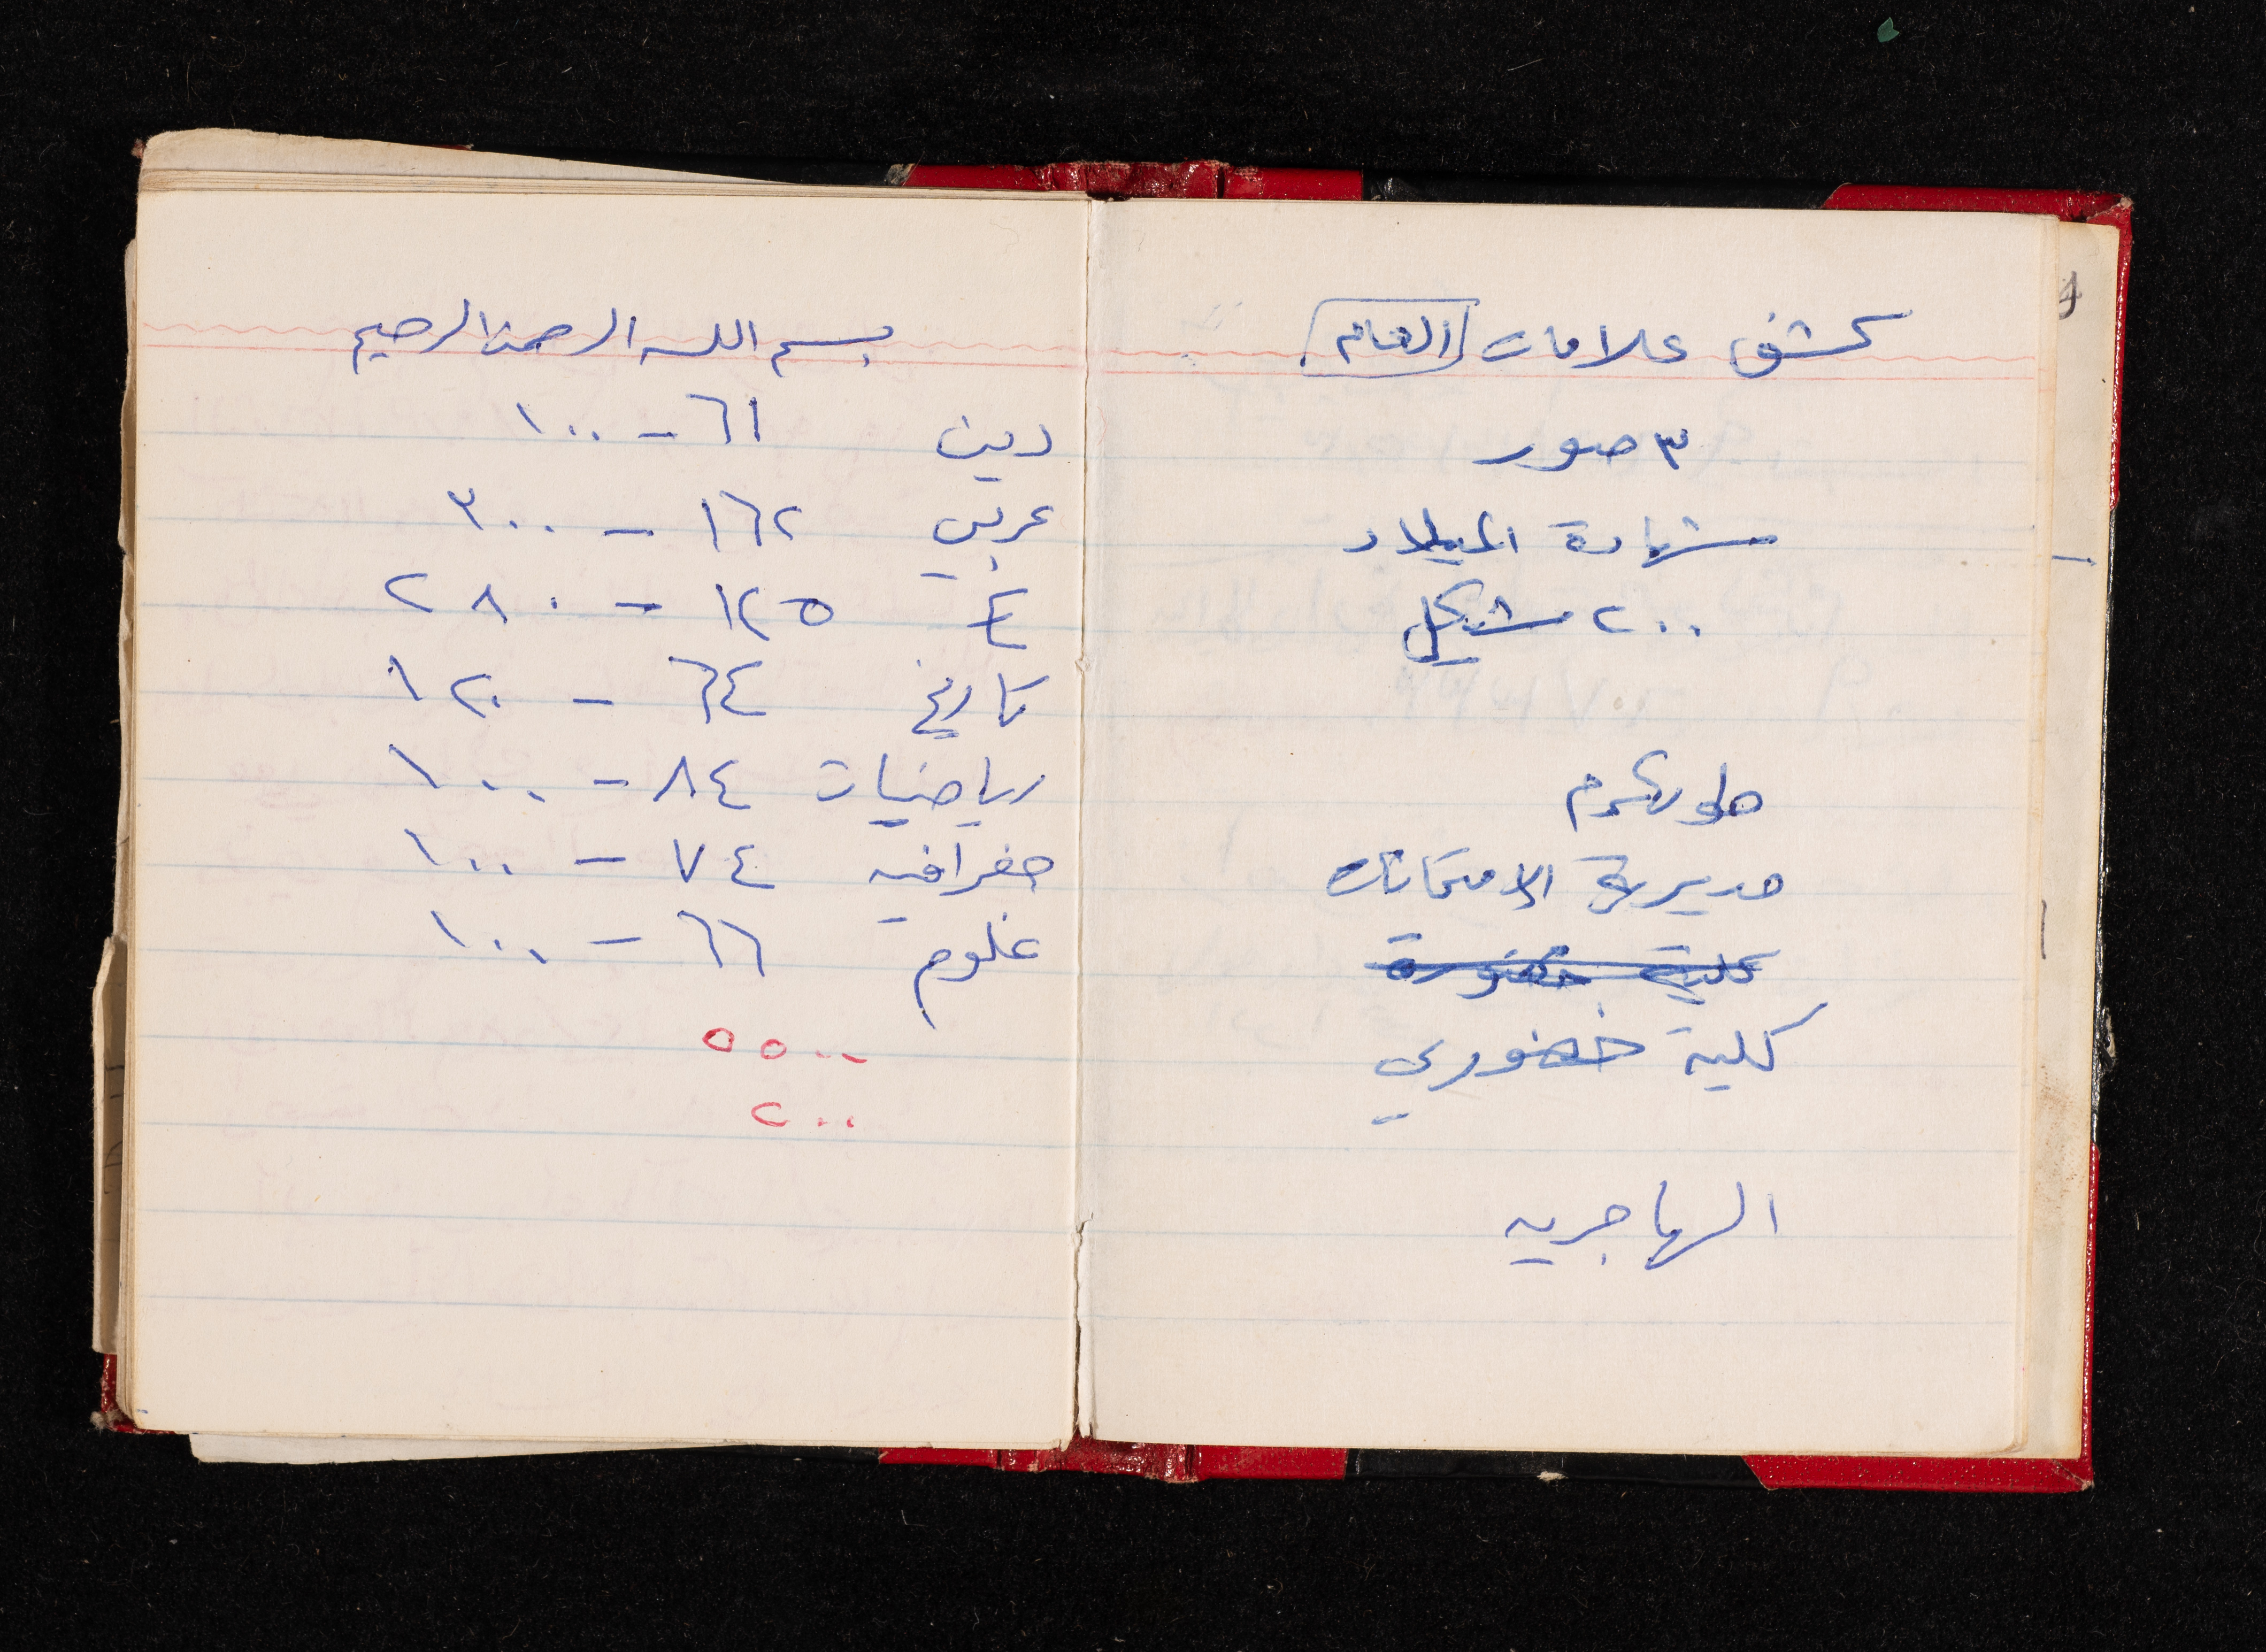 كشف علامات العام
٣ صور
شهادة الميلاد
٢٠٠ شيكل
طولكرم
مديرية الامتحانات
كلية خضورة
كلية خضوري
الهاجريه
بسم الله الرحمن الرحيم
دين ٦١ - ١٠٠
عربي ١٦٢ - ٣٠٠
E ١٢٥ - ٢٨٠
تاريخ ٦٤ - ١٢٠
رياضيات ٨٤ - ١٠٠
جغرافيه ٧٤ - ١٠٠
علوم ٦٦ - ١٠٠
٥٥٠٠
٢٠٠